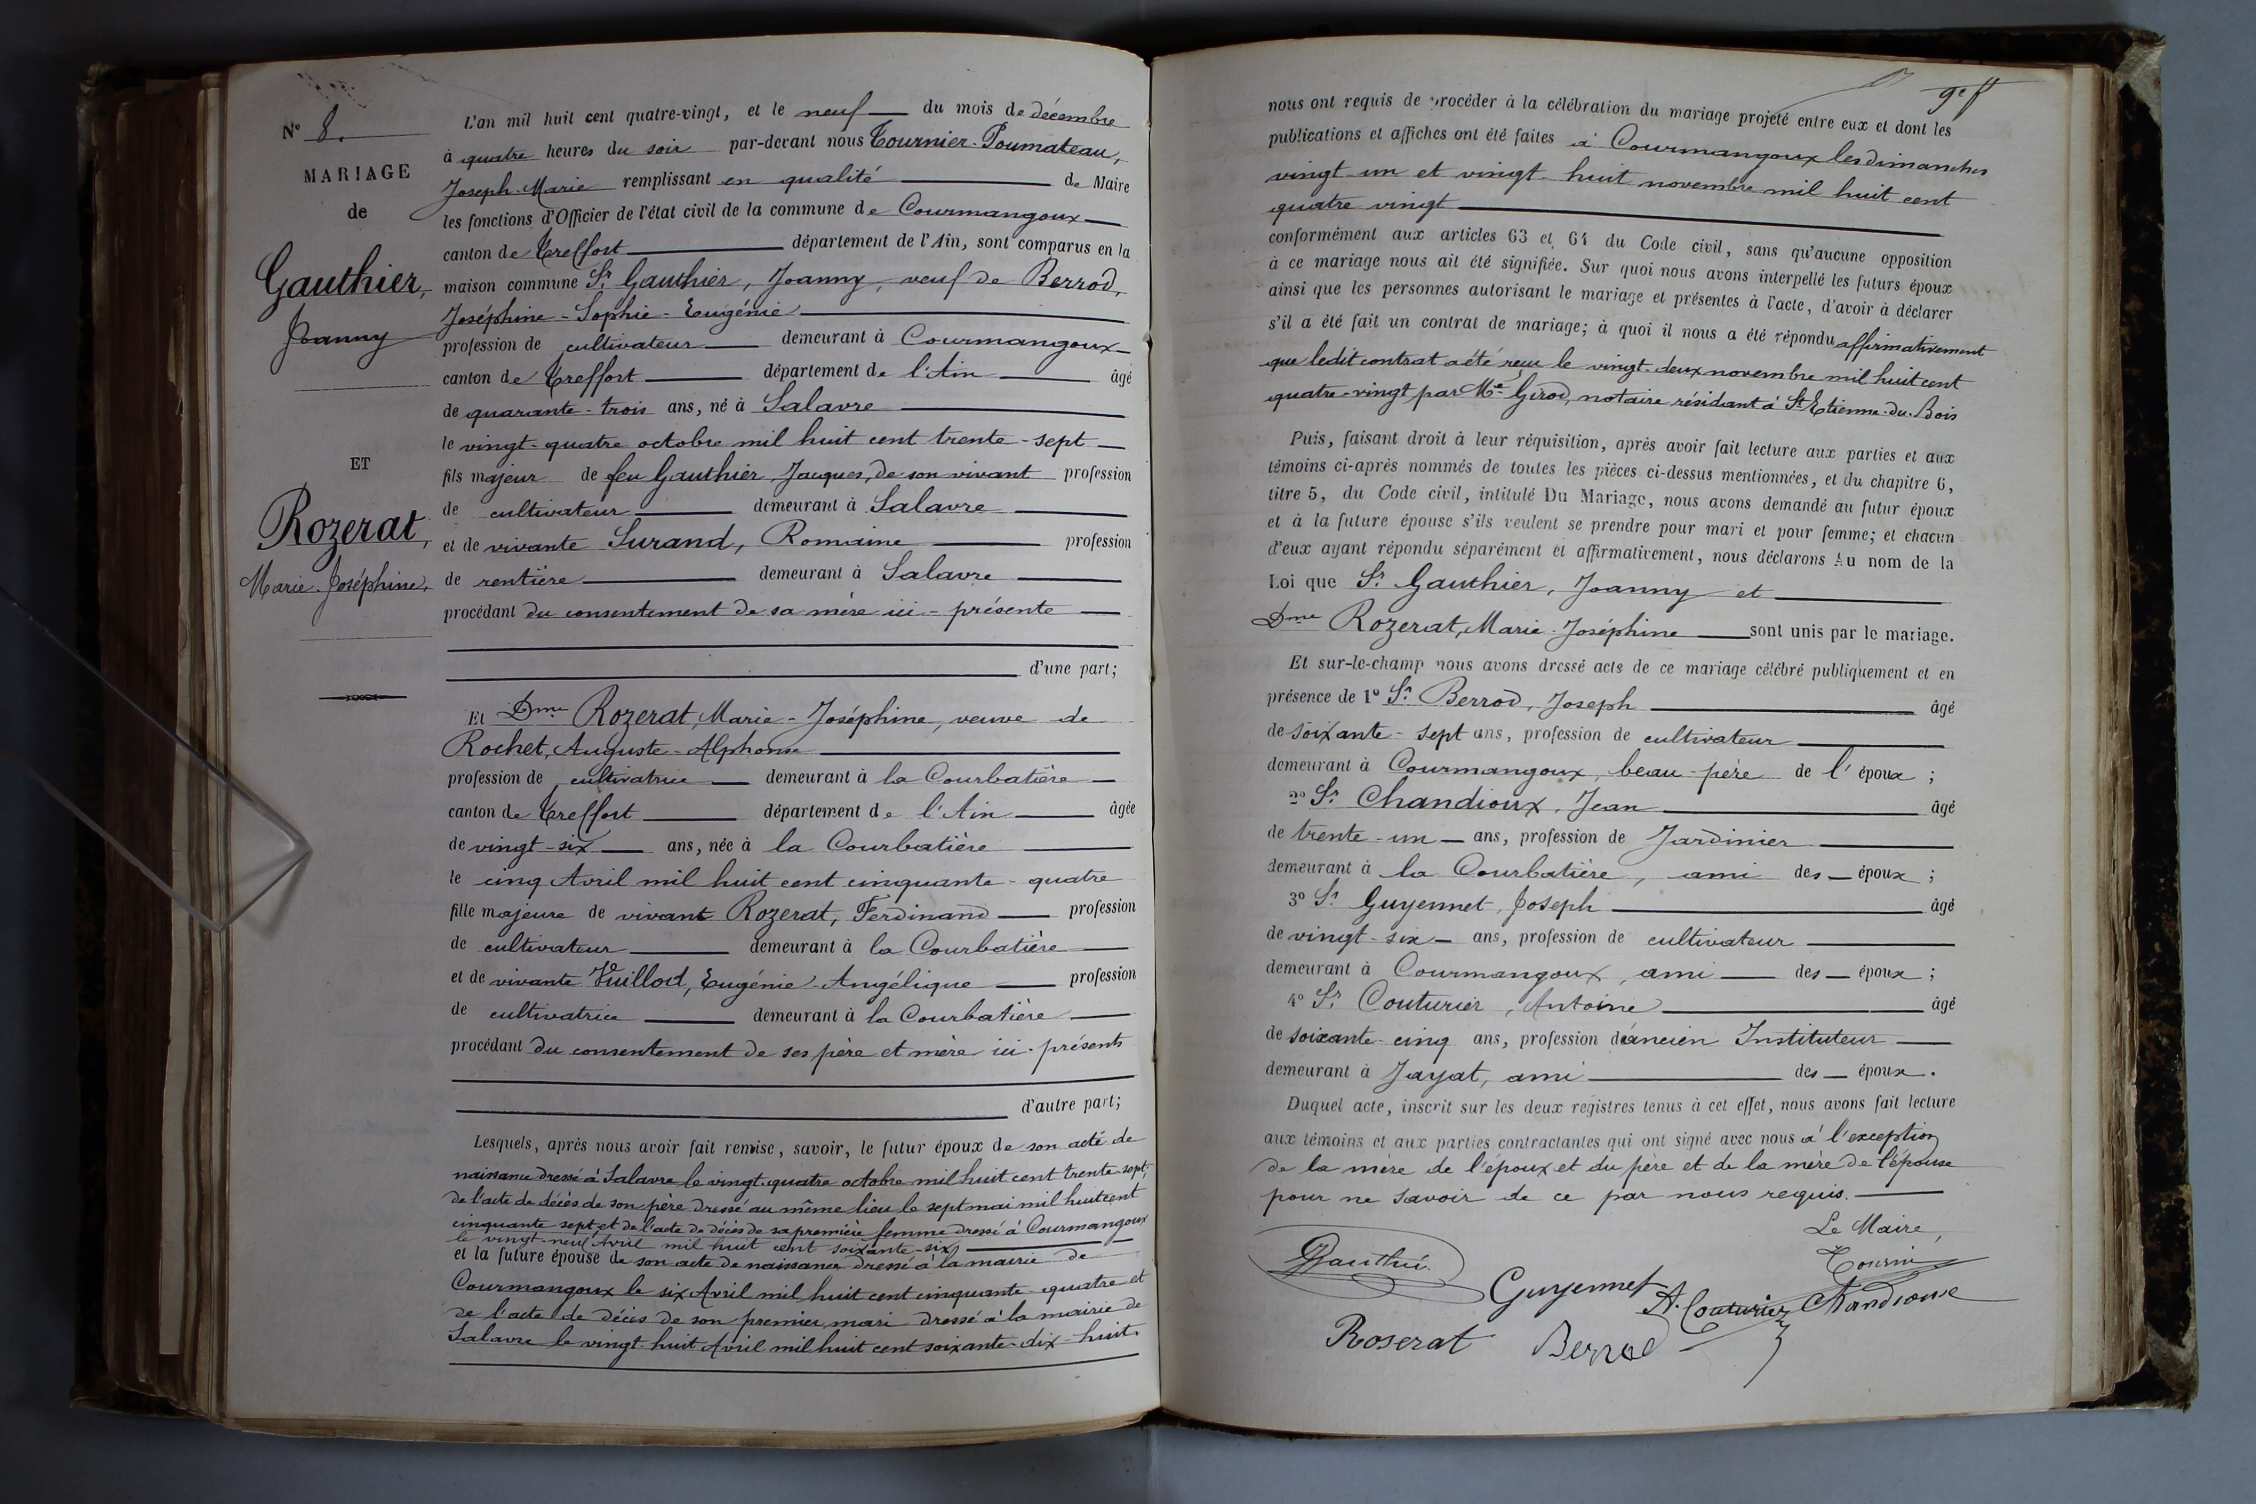 N° 8.
MARIAGE
de
Gauthier,
Joanny
ET
Rozerat,
Marie-Joséphine,
L'an mil huit cent quatre-vingt, et le neuf du mois de décembre
à quatre heures du soir par-devant nous Tournier-Poumateau,
Joseph-Marie remplissant en qualité de Maire
les fonctions d'Officier de l'état civil de la commune de Courmangoux
canton de Treffort département de l'Ain, sont comparus en la
maison commune Sr Gauthier, Joanny, veuf de Berrod,
Joséphine-Sophie-Eugénie
profession de cultivateur demeurant à Courmangoux
canton de Treffort département de l'Ain âgé
de quarante-trois ans, né à Salavre
le vingt-quatre octobre mil huit cent trente-sept
fils majeur de feu Gauthier, Jacques, de son vivant profession
de cultivateur demeurant à Salavre
et de vivante Surand, Romaine profession
de rentière demeurant à Salavre
procédant du consentement de sa mère ici-présente
d'une part;
Et Dme Rozerat, Marie-Joséphine, veuve de
Rochet, Auguste-Alphonse
profession de cultivatrice demeurant à la Courbatière
canton de Treffort département de l'Ain âgée
de vingt-six ans, née à la Courbatière
le cinq Avril mil huit cent cinquante-quatre
fille majeure de vivant Rozerat, Ferdinand profession
de cultivateur demeurant à la Courbatière
et de vivante Vuillod, Eugénie-Angélique profession
de cultivatrice demeurant à la Courbatière
procédant du consentement de ses père et mère ici-présents
d'autre part;
Lesquels, après nous avoir fait remise, savoir, le futur époux de son acte de
naissance dressé à Salavre le vingt-quatre octobre mil huit cent trente-sept,
de l'acte de décès de son père dressé au même lieu le sept mai mil huit cent
cinquante sept et de l'acte de décès de sa première femme dressé à Courmangoux
le vingt-neuf Avril mil huit cent soixante-six
et la future épouse de son acte de naissance dressé à la mairie de
Courmangoux le six Avril mil huit cent cinquante-quatre et
de l'acte de décès de son premier mari dressé à la mairie de
Salavre le vingt-huit Avril mil huit cent soixante-dix-huit.
9e f
nous ont requis de procéder à la célébration du mariage projeté entre eux et dont les
publications et affiches ont été faites à Courmangoux les dimanches
vingt-un et vingt-huit novembre mil huit cent
quatre vingt
conformément aux articles 63 et 64 du Code civil, sans qu'aucune opposition
à ce mariage nous ait été signifiée. Sur quoi nous avons interpellé les futurs époux
ainsi que les personnes autorisant le mariage et présentes à l'acte, d'avoir à déclarer
s'il a été fait un contrat de mariage; à quoi il nous a été répondu affirmativement
que ledit contrat a été reçu le vingt-deux novembre mil huit cent
quatre-vingt par Me Girod, notaire résidant à St Etienne-du-Bois
Puis, faisant droit à leur réquisition, après avoir fait lecture aux parties et aux
témoins ci-après nommés de toutes les pièces ci-dessus mentionnées, et du chapitre 6,
titre 5, du Code civil, intitulé Du Mariage, nous avons demandé au futur époux
et à la future épouse s'ils veulent se prendre pour mari et pour femme; et chacun
d'eux ayant répondu séparément et affirmativement, nous déclarons Au nom de la
Loi que Sr Gauthier, Joanny et
Dme Rozerat, Marie-Joséphine sont unis par le mariage.
Et sur-le-champ nous avons dressé acte de ce mariage célébré publiquement et en
présence de 1° Sr Berrod, Joseph âgé
de soixante-sept ans, profession de cultivateur
demeurant à Courmangoux, beau-père de l'époux;
2° Sr Chandioux, Jean âgé
de trente-un ans, profession de Jardinier
demeurant à la Courbatière, ami des époux;
3° Sr Guyennet, Joseph âgé
de vingt-six ans, profession de cultivateur
demeurant à Courmangoux, ami des époux;
4° Sr Couturier, Antoine âgé
de soixante-cinq ans, profession d'ancien Instituteur
demeurant à Jayat, ami des époux.
Duquel acte, inscrit sur les deux registres tenus à cet effet, nous avons fait lecture
aux témoins et aux parties contractantes qui ont signé avec nous à l'exception
de la mère de l'époux et du père et de la mère de l'épouse
pour ne savoir de ce par nous requis.
Le Maire,
Gauthier
Guyennet
A. Couturier
Chandioux
Roserat
Berrod